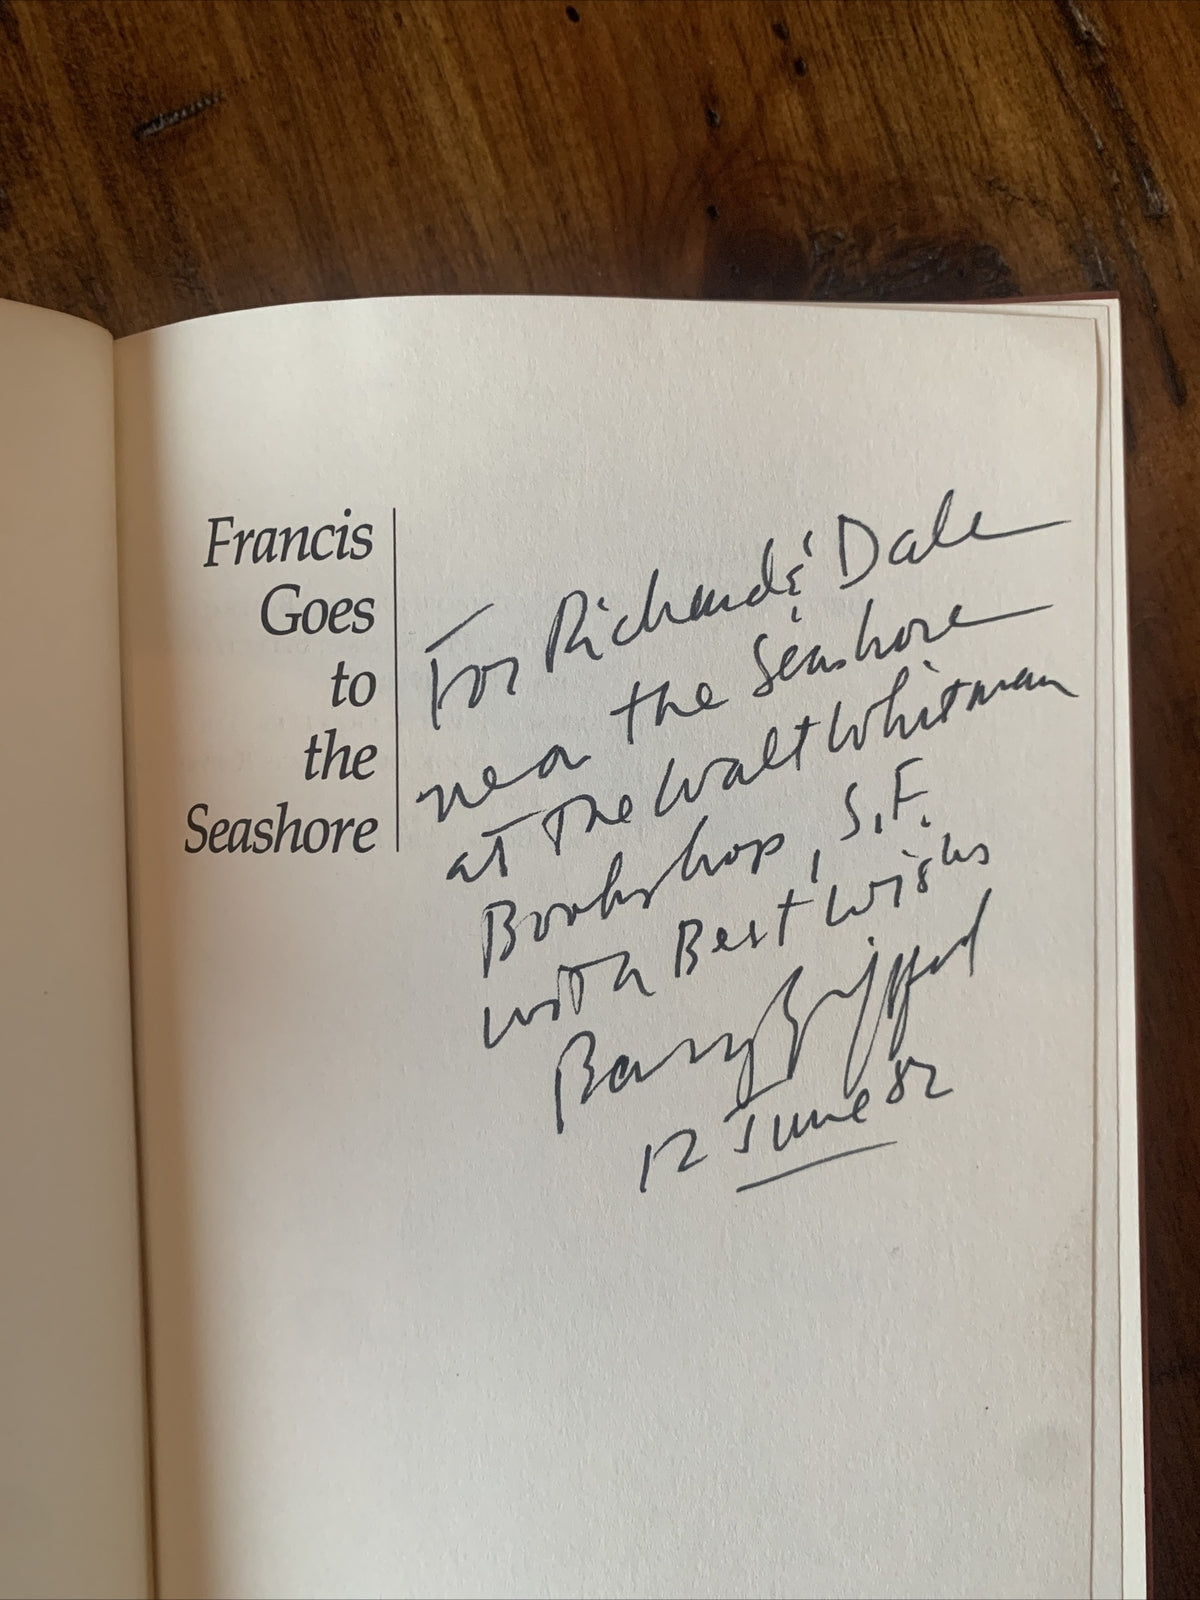 Francis
Goes
to
the
Seashore
For Richard & Dale
near the Seashore
at The Walt Whitman
Bookshop, S.F.
with Best Wishes
Barry Gifford
12 June 82